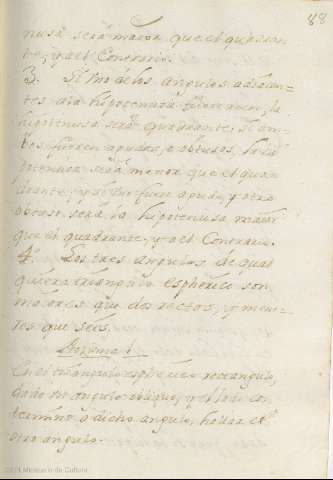 88
nusa será maior que el quadran-
te, y al Contrario.
3. Si uno de los angulos adiacen-
tes á la hipotenusa fuere recto, la
hipotenusa será quadrante, si am-
bos fueren agudos, o obtusos, la hi-
potenusa será menor que el qua-
drante, y si uno fuere agudo, y otro
obtuso, será la hipotenusa maior
que el quadrante, y al Contrario.
4. Los tres angulos, de qual
quiera triangulo espherico son
maiores que dos rectos, y meno-
res que seis.
1.
En el triangulo espherico rectangulo,
dado un angulo obliquo, y el lado con
termino a dicho angulo, hallar el
otro angulo.
Ministerio de Cultura